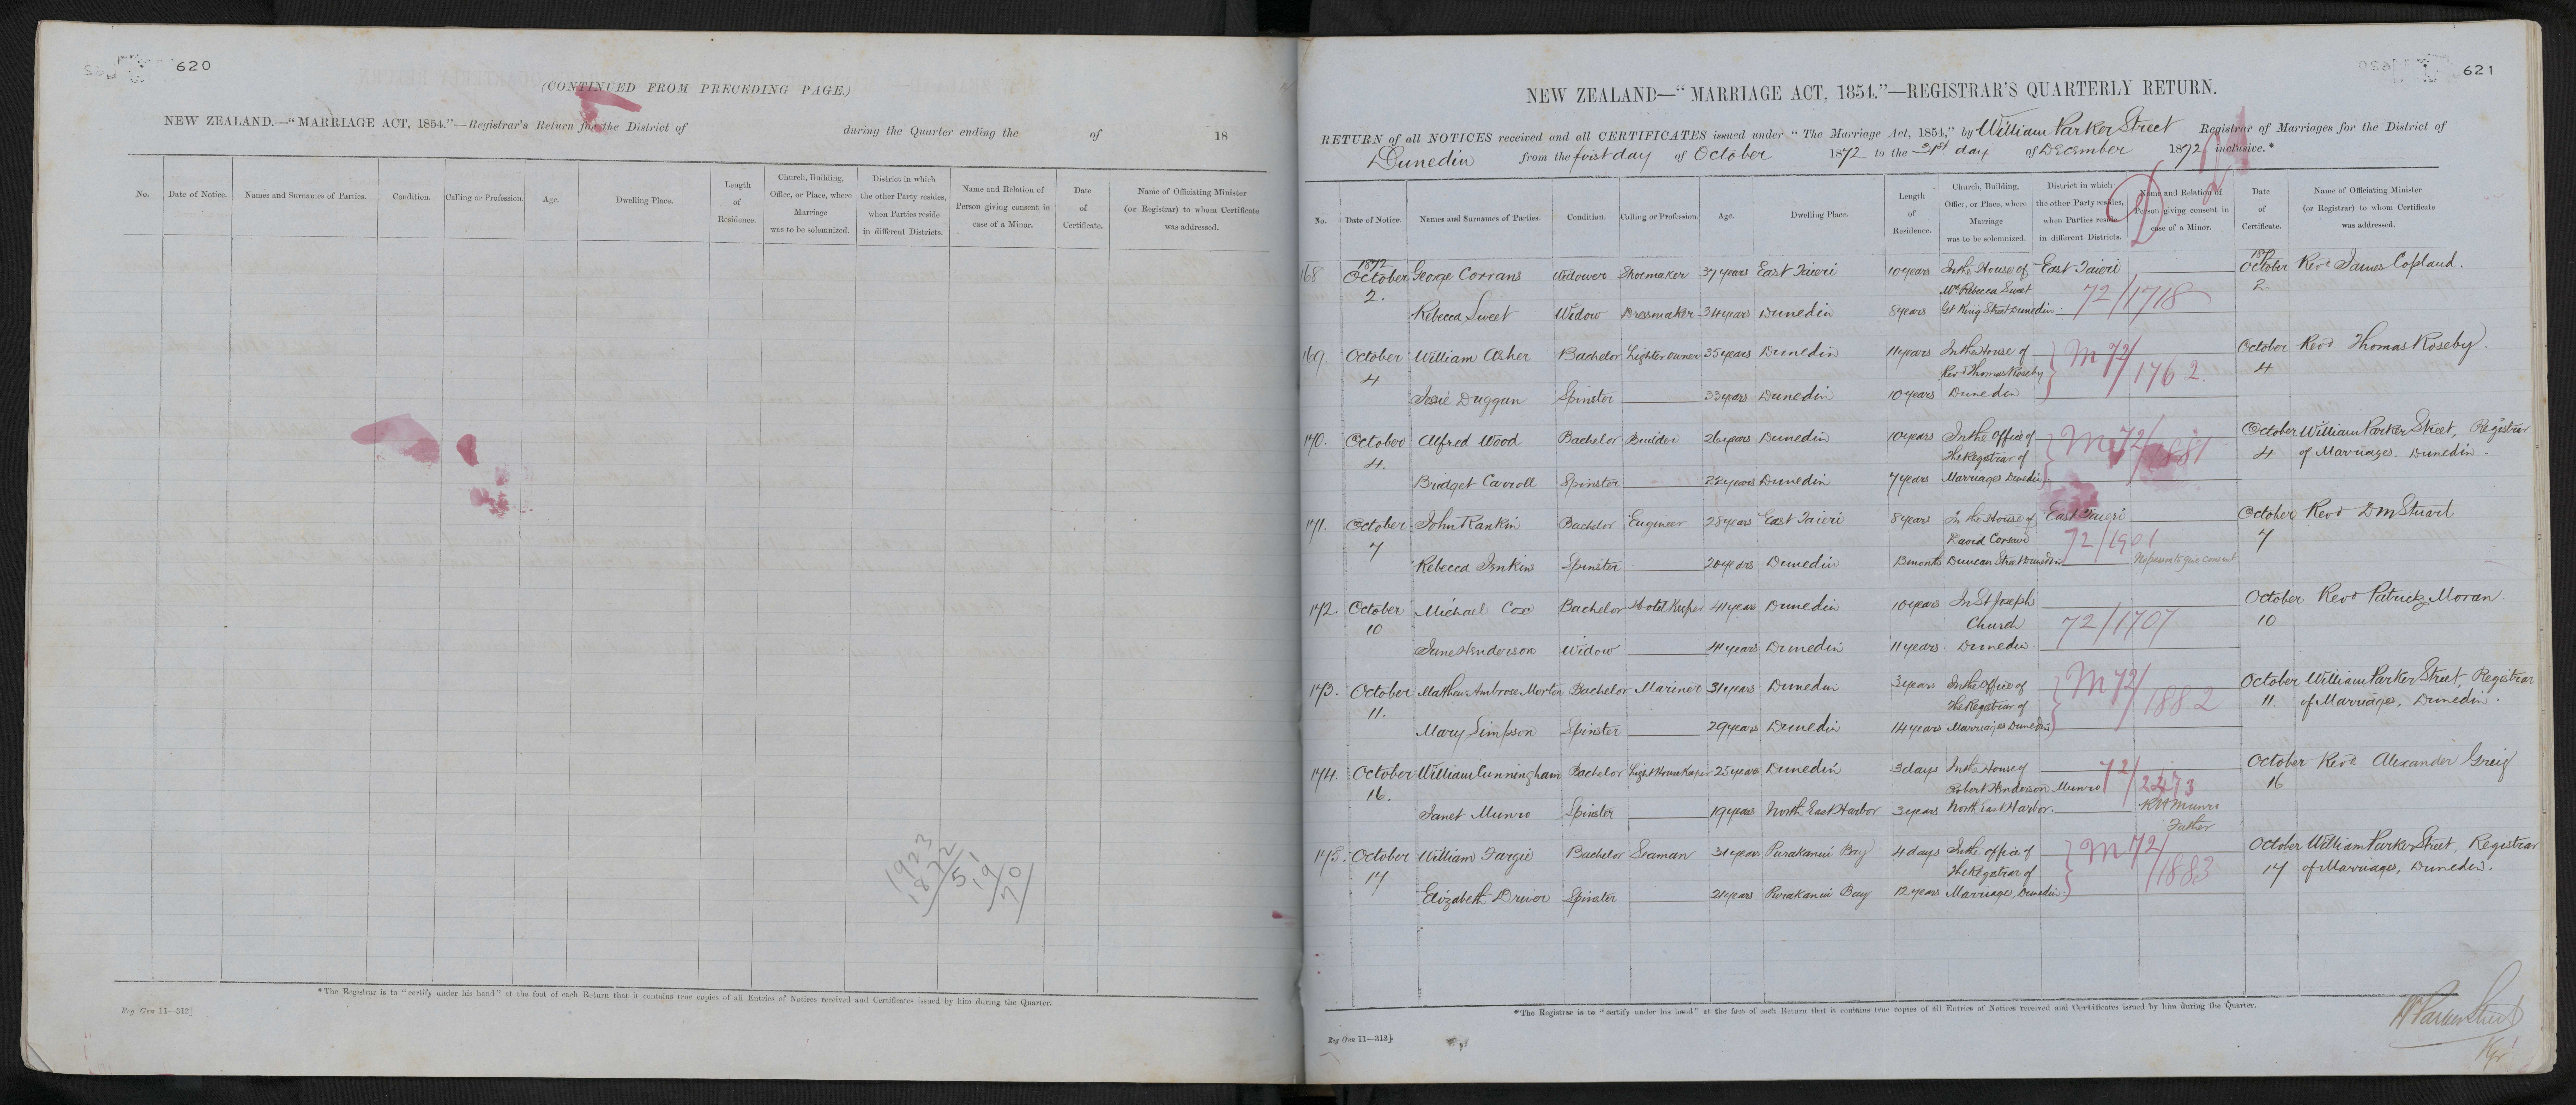 620
(CONTINUED FROM PRECEDING PAGE.)
NEW ZEALAND.—"MARRIAGE ACT, 1854."—Registrar's Return for the District of during the Quarter ending the of 18
No. Date of Notice. Names and Surnames of Parties. Condition. Calling or Profession. Age. Dwelling Place. Length of Residence. Church, Building, Office, or Place, where Marriage was to be solemnized. District in which the other Party resides, when Parties reside in different Districts. Name and Relation of Person giving consent in case of a Minor. Date of Certificate. Name of Officiating Minister (or Registrar) to whom Certificate was addressed.
1923
1872
51
19/70/
*The Registrar is to "certify under his hand" at the foot of each Return that it contains true copies of all Entries of Notices received and Certificates issued by him during the Quarter.
Reg Gen 11—312]
621
NEW ZEALAND—"MARRIAGE ACT, 1854."—REGISTRAR'S QUARTERLY RETURN.
RETURN of all NOTICES received and all CERTIFICATES issued under "The Marriage Act, 1854," by William Parker Street Registrar of Marriages for the District of
Dunedin from the first day of October 1872 to the 31st day of December 1872 inclusive.*
No. Date of Notice. Names and Surnames of Parties. Condition. Calling or Profession. Age. Dwelling Place. Length of Residence. Church, Building, Office, or Place, where Marriage was to be solemnized. District in which the other Party resides, when Parties reside in different Districts. Name and Relation of Person giving consent in case of a Minor. Date of Certificate. Name of Officiating Minister (or Registrar) to whom Certificate was addressed.
168 1872 October 2. George Corrans Widower Shoemaker 37 years East Taieri 10 years In the House of East Taieri 1872 October 2 Revd James Copland.
Mrs Rebecca Sweet 72/1718
Rebecca Sweet Widow Dressmaker 34 years Dunedin 8 years Gt King Street Dunedin
169. October 4 William Asher Bachelor Lighter owner 35 years Dunedin 11 years In the House of M 72/1762 October 4 Revd Thomas Roseby.
Revd Thomas Roseby
Jessie Duggan Spinster 33 years Dunedin 10 years Dunedin
170. October 4. Alfred Wood Bachelor Builder 26 years Dunedin 10 years In the Office of M 72/1881 October 4 William Parker Street, Registrar of Marriages. Dunedin.
The Registrar of
Bridget Carroll Spinster 22 years Dunedin 7 years Marriages Dunedin
171. October 7 John Rankin Bachelor Engineer 28 years East Taieri 8 years In the House of East Taieri October 7 Revd D M Stuart
David 72/1901
Rebecca Jenkins Spinster 20 years Dunedin 13 months Duncan Street Dunedin No person to give consent
172. October 10 Michael Cox Bachelor Hotel Keeper 41 years Dunedin 10 years In St Joseph October 10 Revd Patrick Moran.
Church 72/1707
Jane Henderson Widow 41 years Dunedin 11 years. Dunedin.
173. October 11. Matthew Ambrose Morton Bachelor Mariner 31 years Dunedin 3 years In the Office of M 72/1882 October 11. William Parker Street, Registrar of Marriages, Dunedin.
The Registrar of
Mary Simpson Spinster 29 years Dunedin 14 years Marriages Dunedin
174. October 16. William Cunningham Bachelor Light House Keeper 25 years Dunedin 3 days In the House of 72/2473 October 16 Revd Alexander Greig
Robert Henderson Munro
Janet Munro Spinster 19 years North East Harbor 3 years North East Harbor. R H Munro Father
175. October 17 William Fargie Bachelor Seaman 31 years Purakanui Bay 4 days In the office of M 72/1883 October 17 William Parker Street, Registrar of Marriages, Dunedin.
The Registrar of
Elizabeth Driver Spinster 21 years Purakanui Bay 12 years Marriages, Dunedin.
*The Registrar is to "certify under his hand" at the foot of each Return that it contains true copies of all Entries of Notices received and Certificates issued by him during the Quarter.
Reg Gen 11—312]
W Parker Street
Rgr